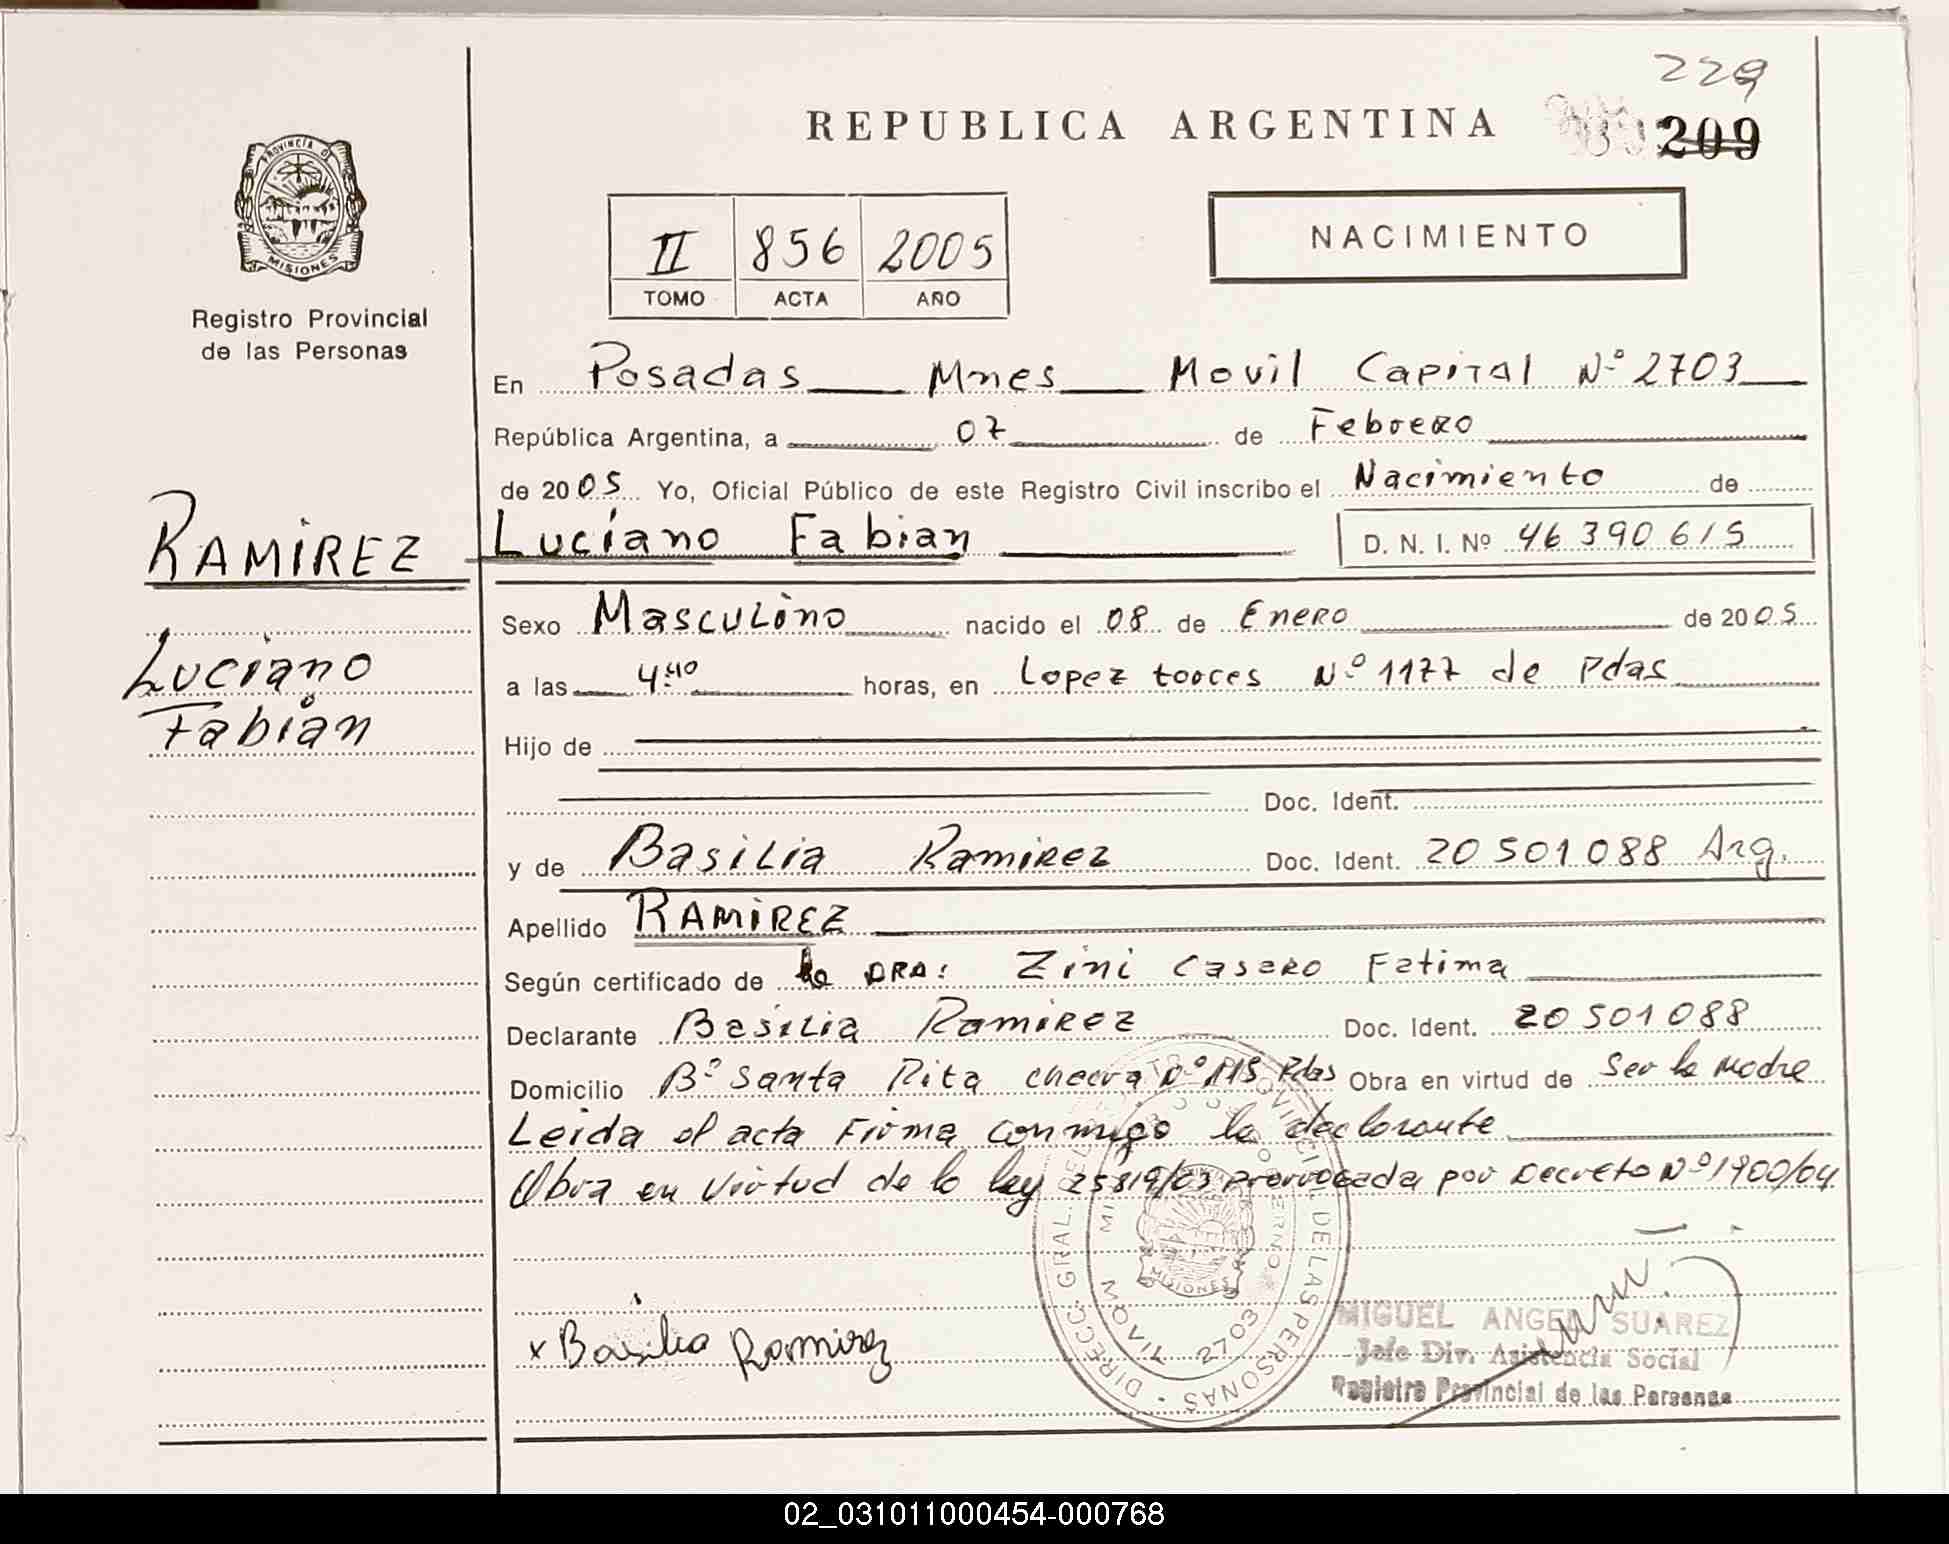 229
REPUBLICA ARGENTINA 209
PROVINCIA DE
MISIONES
Registro Provincial
de las Personas
II 856 2005
TOMO ACTA AÑO
NACIMIENTO
En Posadas Mnes Movil Capital Nº 2703
República Argentina, a 07 de Febrero
de 2005 Yo, Oficial Público de este Registro Civil inscribo el Nacimiento de
RAMIREZ Luciano Fabian D. N. I. Nº 46 390 615
Sexo Masculino nacido el 08 de Enero de 2005
Luciano
Fabian
a las 4:40 horas, en Lopez torres Nº 1177 de Pdas
Hijo de
Doc. Ident.
y de Basilia Ramirez Doc. Ident. 20 501 088 Arg.
Apellido RAMIREZ
Según certificado de la DRA: Zini Casero Fatima
Declarante Basilia Ramirez Doc. Ident. 20 501 088
Domicilio Bº Santa Rita chacra Nº 115 Pdas Obra en virtud de Ser la Madre
Leida el acta Firma conmigo la declarante
Obra en virtud de la ley 25819/03 prorrogada por Decreto Nº 1900/04
x Basilia Ramirez
DIRECC. GRAL. DEL PROVINCIAL DE LAS PERSONAS
GOBIERNO
MOVIL 2703
MISIONES
MIGUEL ANGEL SUAREZ
Jefe Div. Asistencia Social
Registro Provincial de las Personas
02_031011000454-000768